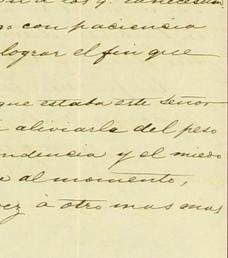 con paciencia
lograr el fin que
que estaba este Señor
aliviarle del peso
y el miedo
al momento,
á otro mas